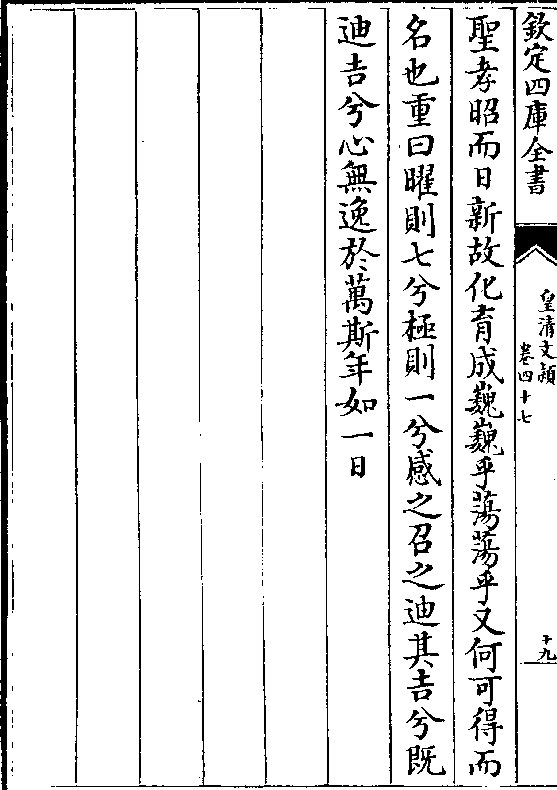 欽定四庫全書
皇清文穎
卷四十七
十九
聖孝昭而日新故化育成巍巍乎蕩蕩乎又何可得而
名也重曰曜則七兮極則一兮感之召之迪其吉兮既
迪吉兮心無逸於萬斯年如一日